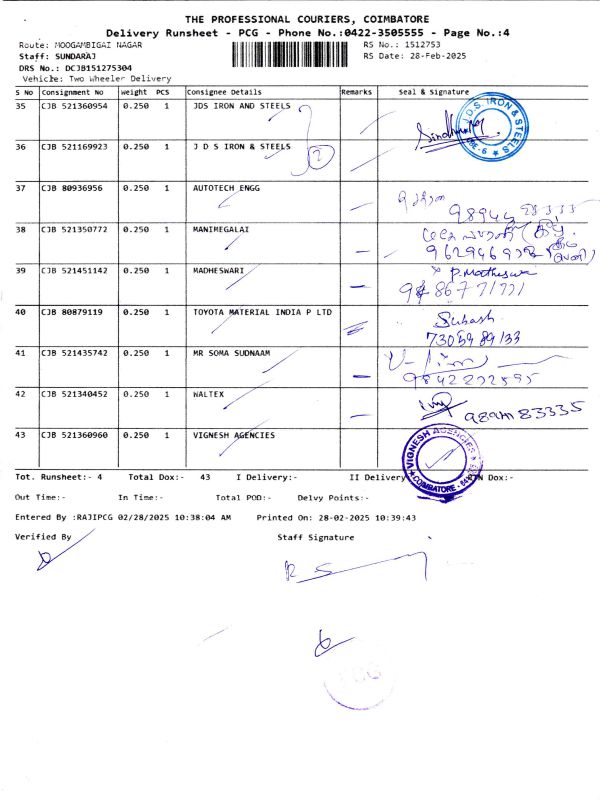 THE PROFESSIONAL COURIERS, COIMBATORE
Delivery Runsheet - PCG - Phone No.:0422-3505555 - Page No.:4
Route: MOOGAMBIGAI NAGAR RS No.: 1512753
Staff: SUNDARAJ RS Date: 28-Feb-2025
DRS No.: DCJB151275304
Vehicle: Two Wheeler Delivery
S No Consignment No Weight PCS Consignee Details Remarks Seal & Signature
35 CJB 521360954 0.250 1 JDS IRON AND STEELS
J.D.S. IRON & STEELS
36 CJB 521169923 0.250 1 J D S IRON & STEELS 2
37 CJB 80936956 0.250 1 AUTOTECH ENGG
38 CJB 521350772 0.250 1 MANIMEGALAI
39 CJB 521451142 0.250 1 MADHESWARI
40 CJB 80879119 0.250 1 TOYOTA MATERIAL INDIA P LTD Subash
73059 89133
41 CJB 521435742 0.250 1 MR SOMA SUDNAAM
42 CJB 521340452 0.250 1 WALTEX
43 CJB 521360960 0.250 1 VIGNESH AGENCIES
VIGNESH AGENCIES
COIMBATORE
Tot. Runsheet:- 4 Total Dox:- 43 I Delivery:- II Delivery Dox:-
Out Time:- In Time:- Total POD:- Delvy Points:-
Entered By :RAJIPCG 02/28/2025 10:38:04 AM Printed On: 28-02-2025 10:39:43
Verified By Staff Signature